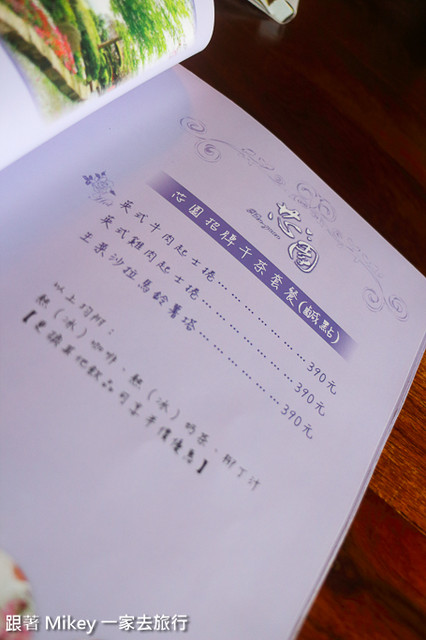 芯園
芯園招牌午茶套餐(鹹點)
英式牛肉起士捲………………390元
英式雞肉起士捲………………390元
生菜沙拉馬鈴薯塔……………390元
以上均附:
熱(冰)咖啡、熱(冰)奶茶、柳丁汁
【更換其他飲品可享半價優惠】
跟著 Mikey 一家去旅行